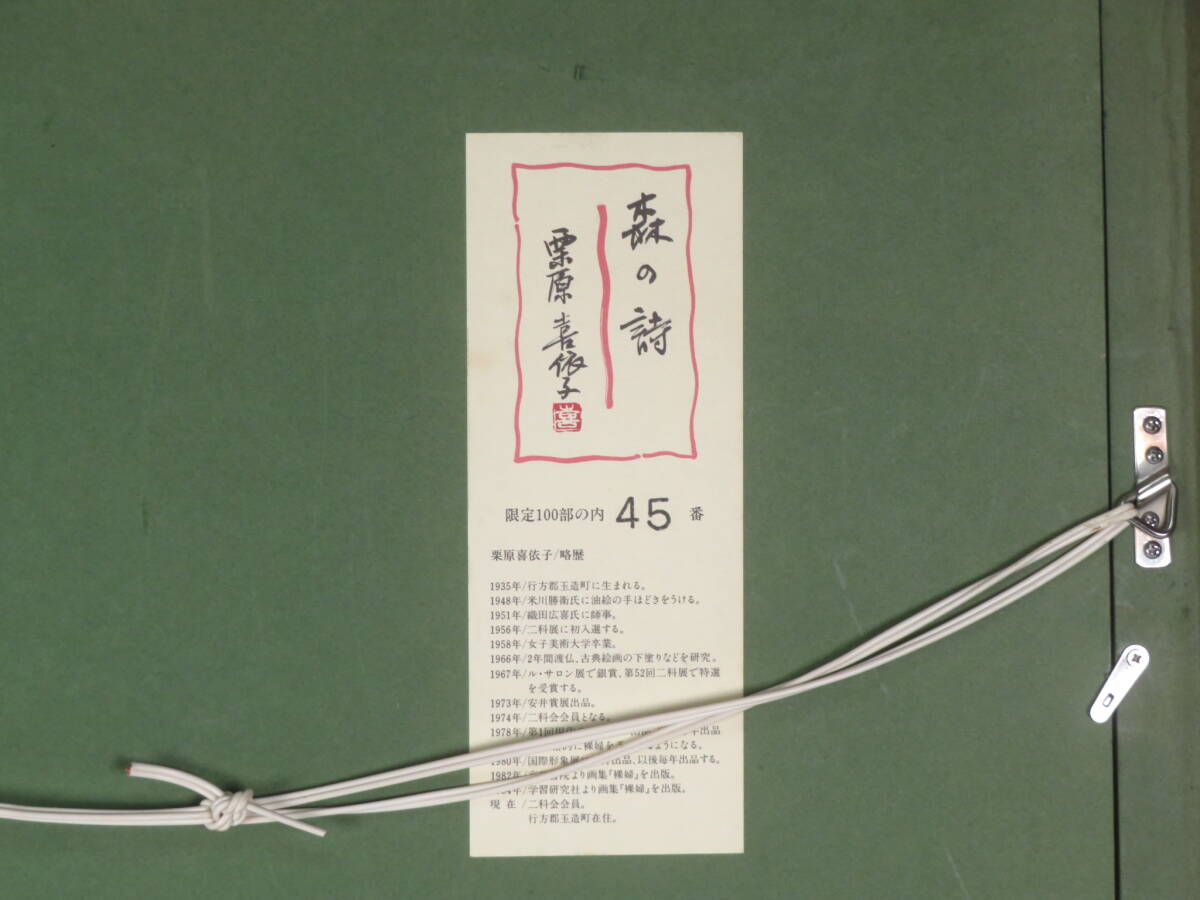 森の詩
栗原喜依子
喜
限定100部の内 45 番
栗原喜依子/略歴
1935年/行方郡玉造町に生まれる。
1948年/米川勝衛氏に油絵の手ほどきをうける。
1951年/織田広喜氏に師事。
1956年/二科展に初入選する。
1958年/女子美術大学卒業。
1966年/2年間渡仏、古典絵画の下塗りなどを研究。
1967年/ル・サロン展で銀賞、第52回二科展で特選
を受賞する。
1973年/安井賞展出品。
1974年/二科会会員となる。
1978年/第1回 出品
的に裸婦を ようになる。
1980年/国際形象展 出品、以後毎年出品する。
1982年/ 院より画集『裸婦』を出版。
年/学習研究社より画集『裸婦』を出版。
現在/二科会会員。
行方郡玉造町在住。